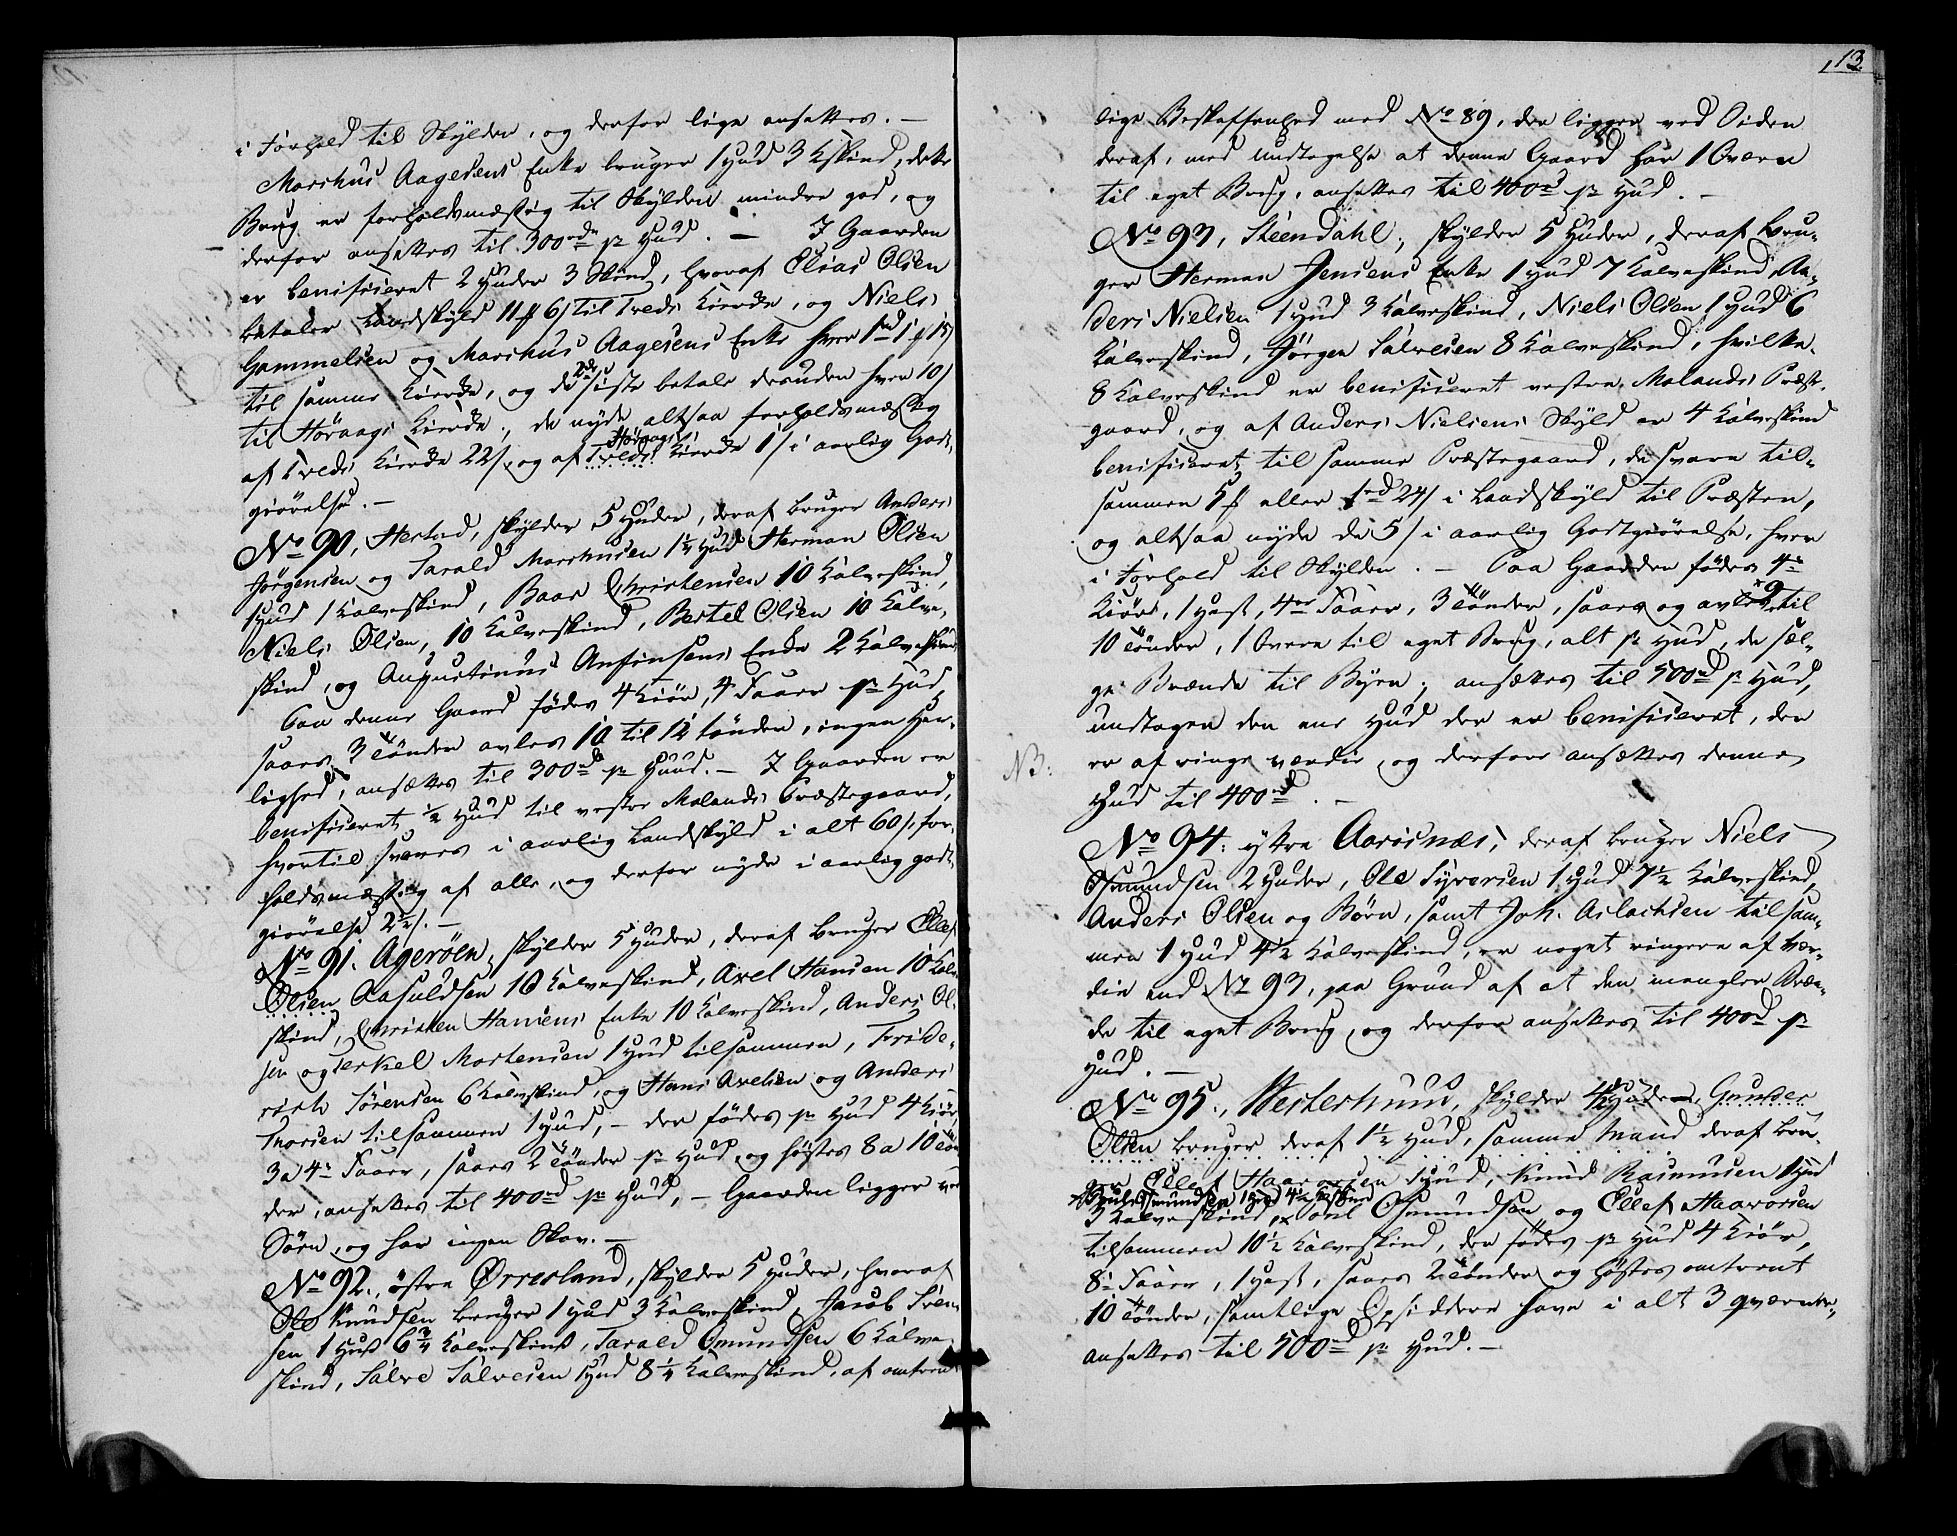 i Forhold til Skylden, og derfor lige ansættes. —
Marchus Aagesens Enke bruger 1 Hud 3 Kskind, dette
Brug er forholdsmæssig til Skylden mindre god, og
derfor ansættes til 300rd pr Hud. — I Gaarden
er benificeret 2 Huder 3 Skind, hvoraf Elias Olsen
betaler Landskyld 11 f 6 s til Treds Kierke, og Niels
Gammelsen og Marchus Aagesens Enke hver 1rd 1 f 15 s
til samme Kierke, og de 2de sidste betale desuden hver 10 s
til Høvaags Kierke, de nyde altsaa forholdsmæssig
af Treds Kierke 22 s, og af Høvaags Kierke 1 s i aarlig Godt-
giørelse. —
No 90, Hæstad, skylder 5 Huder, deraf bruger Anders
Jørgensen og Tarald Marchusen 1¼ Hud Herman Olsen
1 Hud 1 Kalveskind, Baar Christensen 10 Kalveskind,
Niels Olsen, 10 Kalveskind, Bertel Olsen 10 Kalve-
skind, og Augustinus Anfinsens Enke 2 Kalveskind
Paa denne Gaard fødes 4 Kiør, 4 Faarr pr Hud,
saaes 3 Tønder avles 10 til 12 tønder, ingen Her-
lighed, ansættes til 300rd pr Huud. — I Gaarden er
benificeret ½ Hud til vestre Molands Præstegaard,
hvortil svares i aarlig Landskyld i alt 60 s, for-
holdsmæssig af alle, og derfor nyde i aarlig godt-
giørelse 2½ s. —
No 91. Agerøen, skylder 5 Huder, deraf bruger Ellef
Olsen Aasuldsen 10 Kalveskind, Axel Hansen 10 Kalve-
skind, Christen Hansens Enke 10 Kalveskind, Anders Ol-
sen og Terkel Mortensen 1 Hud tilsammen, Fride-
rich Sørensen 6 Kalveskind, og Hans Axelsen og Anders
Thorsen tilsammen 1 Hud, — der fødes pr Hud 4 Kiør,
3 a 4 Faarr, saaes 2 Tønder pr Hud, og høstes 8 a 10 Tøn-
der, ansættes til 400rd pr Hud, — Gaarden ligger ved
Søen, og har ingen Skov. —
No 92., østre Ørresland, skylder 5 Huder, hvoraf
Ole Knudsen bruger 1 Hud 3 Kalveskind, Jacob Svен-
sen 1 Hud 6¾ Kalveskind, Tarald Omundsen 6 Kalve-
skind, Salve Salvesen 1 Hud 8¼ Kalveskind, af omtrent
13.
lige Beskaffenhed med No 89, der ligger ved Siden
deraf, med undtagelse at denne Gaard har 1 Qværn
til eget Brug, ansættes til 400rd pr Hud. —
No 93, Steendahl, skylder 5 Huder, deraf bru-
ger Herman Jensens Enke 1 Hud 7 Kalveskind, An-
ders Nielsen 1 Hud 3 Kalveskind, Niels Olsen 1 Hud 6
Kalveskind, Jørgen Salvesen 8 Kalveskind, hvilke
8 Kalveskind er benificeret vestre Molands Præste-
gaard, og af Anders Nielsens Skyld er 4 Kalveskind
benificeret til samme Præstegaard, de svare til-
sammen 5 f eller 1rd 24 s i Landskyld til Præsten,
og altsaa nyde de 5 s i aarlig Godtgiørelse, hver
i Forhold til Skylden. — Paa Gaarden fødes 4
Kiør, 1 Hest, 4 Faarr, 3 Tønder, saaes og avles 9 til
10 Tønder, 1 Qværn til eget Brug, alt pr Hud, de sæl-
ge Brænde til Byen; ansættes til 500rd pr Hud,
undtagen den ene Hud der er benificeret, der
NB: er af ringe værdie, og derfore ansættes denne
Hud til 400rd. —
No 94: ytre Aarisnæs, deraf bruger Niels
Osmundsen 2 Huder, Ole Syversen 1 Hud 7½ Kalveskind,
Anders Olsen og Børn, samt Joh. Aslachsen tilsam-
men 1 Hud 4½ Kalveskind, er noget ringere af Vær-
die end No 93, paa Grund af at den mangler Bræn-
de til eget Brug, og derfor ansættes til 400rd pr
Hud. —
No 95., Westerhuus, skylder 4½ Huder, Gunder
Olsen bruger deraf 1½ Hud, samme Mand deraf bru-
ger Ellef Haavorsen 1 Hud, Knud Rasmussen 1 Hud
× Poul Osmundsen 1 Hud 4½ Kskind
3 Kalveskind, × Poul Osmundsen og Ellef Haavorsen
tilsammen 10½ Kalveskind, der fødes pr Hud 4 Kiør,
8 Faarr, 1 Hest, saaes 2 Tønder og høstes omtrent
10 Tønder, samtlige Opsiddere have i alt 3 qværne,
ansættes til 500rd pr Hud. —